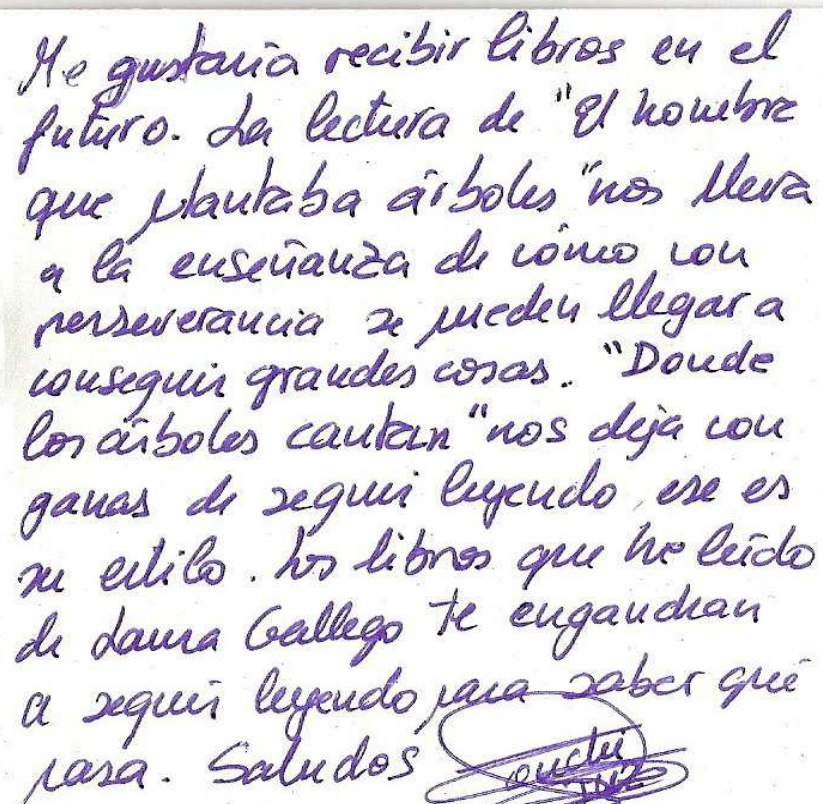 Me gustaría recibir libros en el
futuro. La lectura de "El hombre
que plantaba árboles" nos lleva
a la enseñanza de cómo con
perseverancia se pueden llegar a
conseguir grandes cosas. "Donde
los árboles cantan" nos deja con
ganas de seguir leyendo, ese es
su estilo. Los libros que he leído
de Laura Gallego te enganchan
a seguir leyendo para saber qué
pasa. Saludos